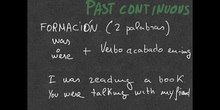 PAST CONTINUOUS
FORMACIÓN (2 palabras)
was
were + Verbo acabado en -ing
I was reading a book.
You were talking with my friend